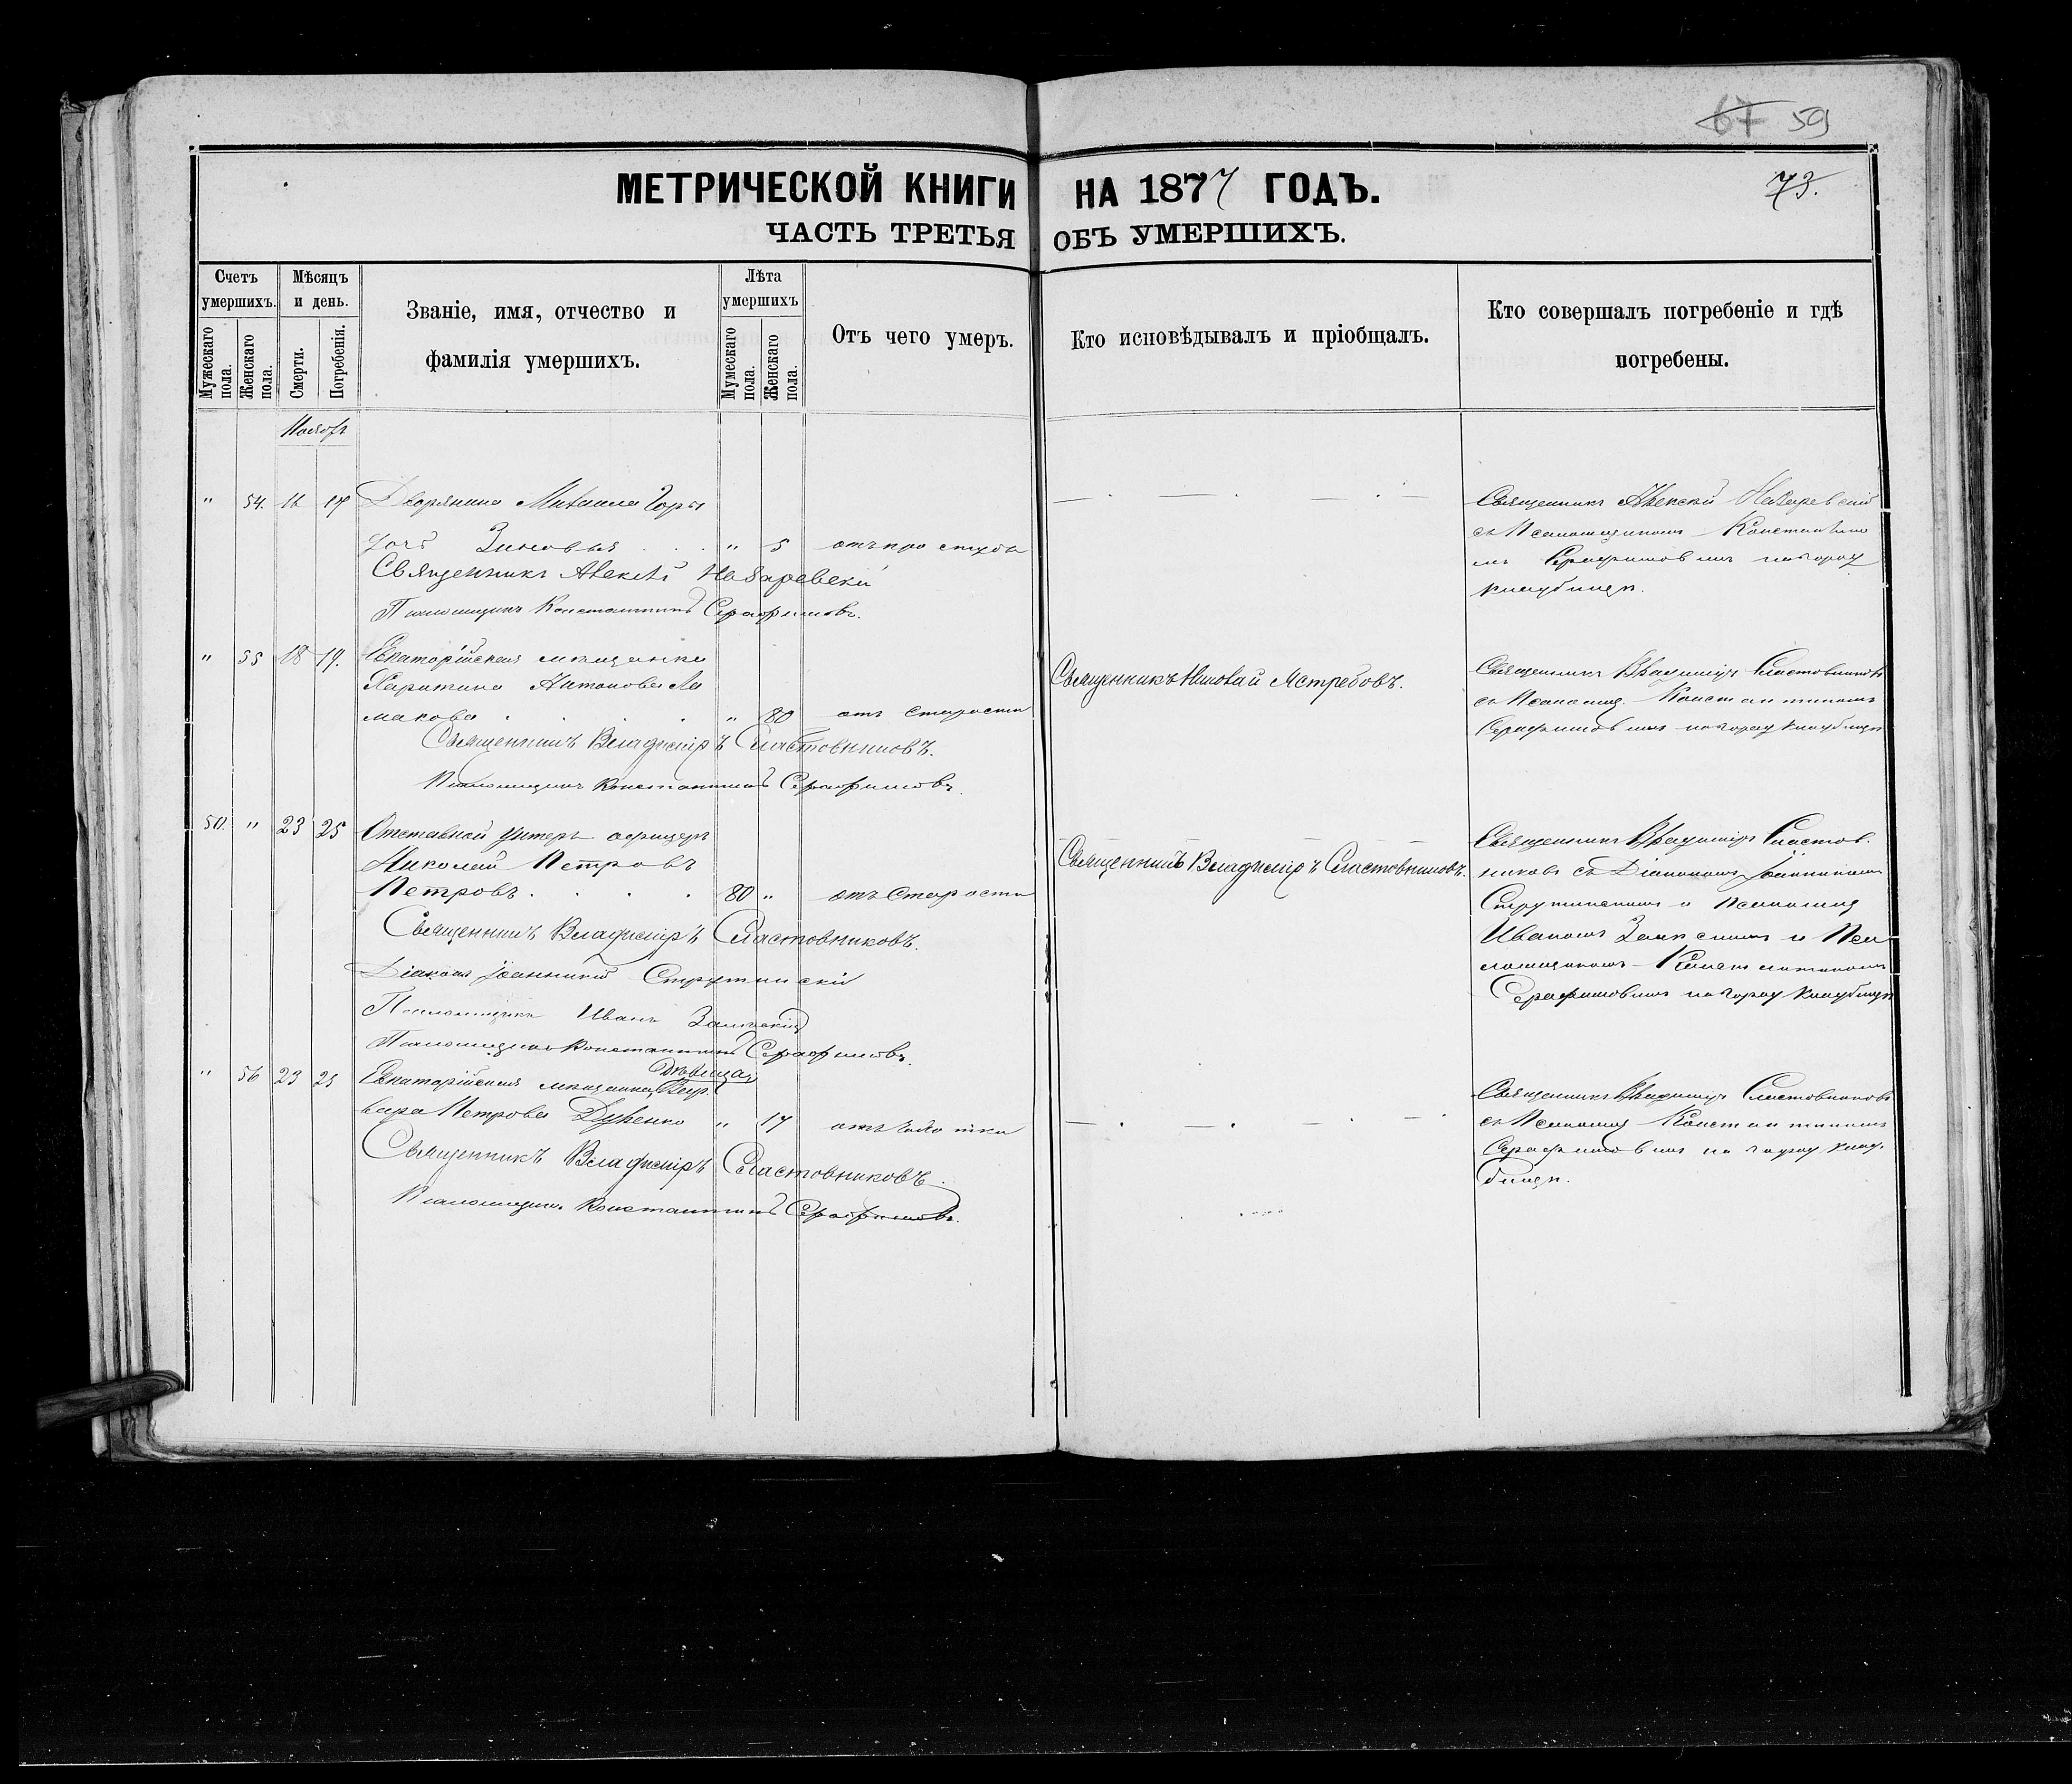 67 59
МЕТРИЧЕСКОЙ КНИГИ НА 1877 ГОДЪ.
73.
ЧАСТЬ ТРЕТЬЯ ОБЪ УМЕРШИХЪ.
Счетъ умершихъ.
Мужескаго пола.
Женскаго пола.
Мѣсяцъ и день.
Смерти.
Погребенія.
Званіе, имя, отчество и
фамилія умершихъ.
Лѣта умершихъ
Мужескаго пола.
Женскаго пола.
Отъ чего умеръ.
Кто исповѣдывалъ и пріобщалъ.
Кто совершалъ погребеніе и гдѣ
погребены.
Ноябрь
" 54. 16 17 Дворянина Михаила
дочь Зиновья " 5 отъ простуды
Священникъ Алексѣй Назаревскій
Псаломщикъ Константинъ Серафимовъ.
Священникъ Алексѣй Назаревскій
съ Псаломщикомъ Константино
мъ Серафимовымъ на город
кладбищѣ.
" 55 18 19. Евпаторійская мѣщанка
Харитина Антонова Ла
макова " 80 отъ старости
Священникъ Владиміръ Сластовниковъ.
Псаломщикъ Константинъ Серафимовъ.
Священникъ Николай Ястребовъ.
Священникъ Владиміръ Сластовниковъ
съ Псаломщ. Константиномъ
Серафимовымъ на город кладбищѣ
50. " 23 25 Отставной унтеръ офицеръ
Николай Петровъ
Петровъ 80 " отъ старости
Священникъ Владиміръ Сластовниковъ.
Діаконъ Іоанникій Струтинскій
Псаломщикъ Иванъ
Псаломщикъ Константинъ Серафимовъ.
Священникъ Владиміръ Сластовниковъ.
Священникъ Владиміръ Сластов.
никовъ съ Діакономъ Іоанникіемъ
Струтинскимъ и Псаломщ
Иваномъ и Пса
ломщикомъ Константиномъ
Серафимовымъ на город кладбищѣ
" 56 23 25 Евпаторійская мѣщанка дѣвица Вар
вара Петрова " 17 отъ чахотки
Священникъ Владиміръ Сластовниковъ.
Псаломщикъ Константинъ Серафимовъ.
Священникъ Владиміръ Сластовниковъ
съ Псаломщ Константиномъ
Серафимовымъ на город клад.
бищѣ.